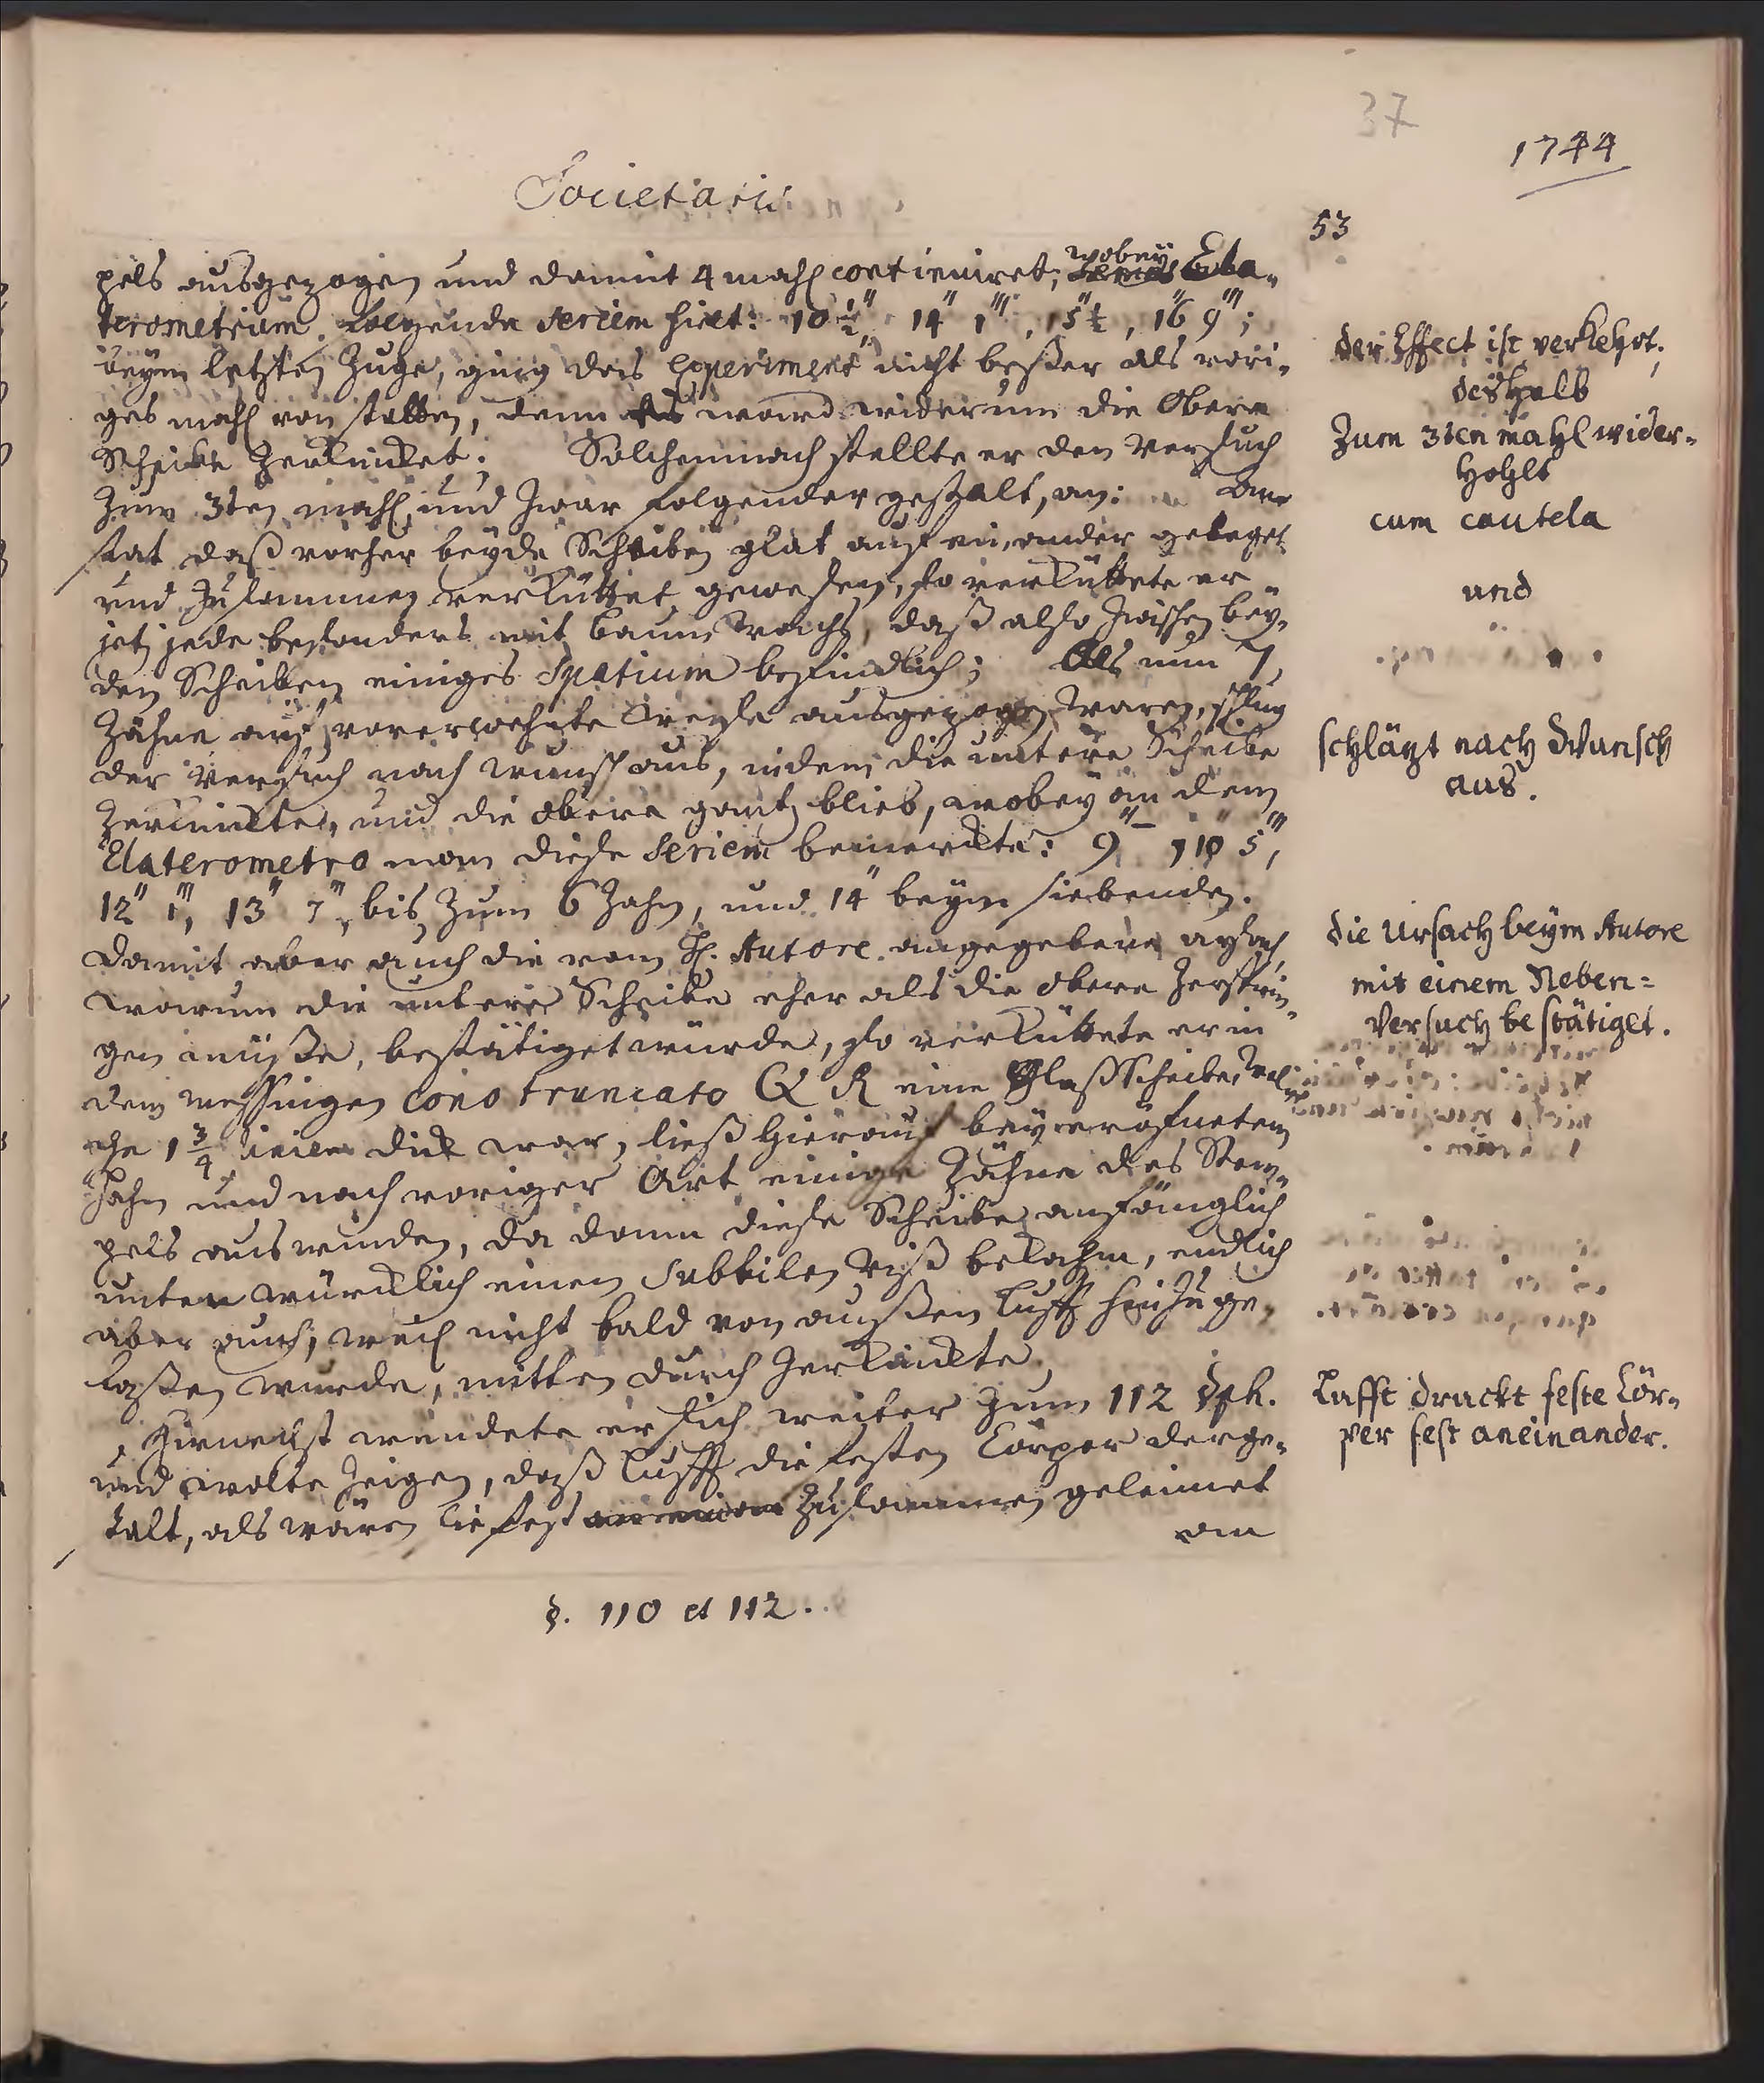 37
1744
Societatis
53
pels ausgezogen und damit 4 mahl continuiret; wobey Ela-
terometrium folgende seriem hielt: 10 ½", 14" 1''', 15" ½, 16" 9''';
beym letzten Zuge, ging das Experiment nicht beßer als vori-
ges mahl von statten, denn es ward widerum die Obere
Scheibe zerknicket. Solchemnach stellte er den Versuch
zum 3ten mahl, und zwar folgender gestalt, an: An-
stat daß vorher beyde Scheiben glat auf einander geleget
und zusammen verküttet gewesen, so verküttete er
jetzt jede besonders mit Baum Wachs, daß also zwischen bey-
den Scheiben einiges Spatium befindlich; Als nun 7
Zähne auf vorerwehnte Weise ausgezogen waren, schlug
der Versuch nach wunsch aus, indem die untere Scheibe
zerknickte, und die obere gantz blieb, wobey an dem
Elaterometro man diese Seriem bemerckte: 9", 10" 5''',
12" 1''', 13" 7''', bis zum 6 Zahn, und 14" beym siebenden.
Damit aber auch die vom H. Autore angegebene ursach,
warum die untere Scheibe eher als die obere zersprin-
gen müße, bestätiget würde, so verküttete er in
dem meßingen Cono truncato Q R eine Glaß Scheibe, wel-
che 1 ¾ Linien dick war, ließ hierauf bey eröfnetem
Hahn und nach voriger Art einige Zähne des Stem-
pels auswinden, da dann diese Scheibe anfänglich
unten würcklich einen subtilen Riß bekahm, endlich
aber auch, weil nicht bald von außen Lufft hinzu ge-
laßen wurde, mitten durch zerknickte.
Hirnechst wendete er sich weiter zum 112 §ph.
und wolte zeigen, daß Lufft die festen Cörper derge-
stalt, als wären sie fest zusammen geleimet
an
§. 110 et 112.
der Effect ist verkehrt;
deshalb
Zum 3ten mahl wider-
hohlt
cum cautela
und
schlägt nach Wunsch
aus.
die Ursach beym Autore
mit einem Neben-
Versuch bestätiget.
Lufft druckt feste Cör-
per fest aneinander.